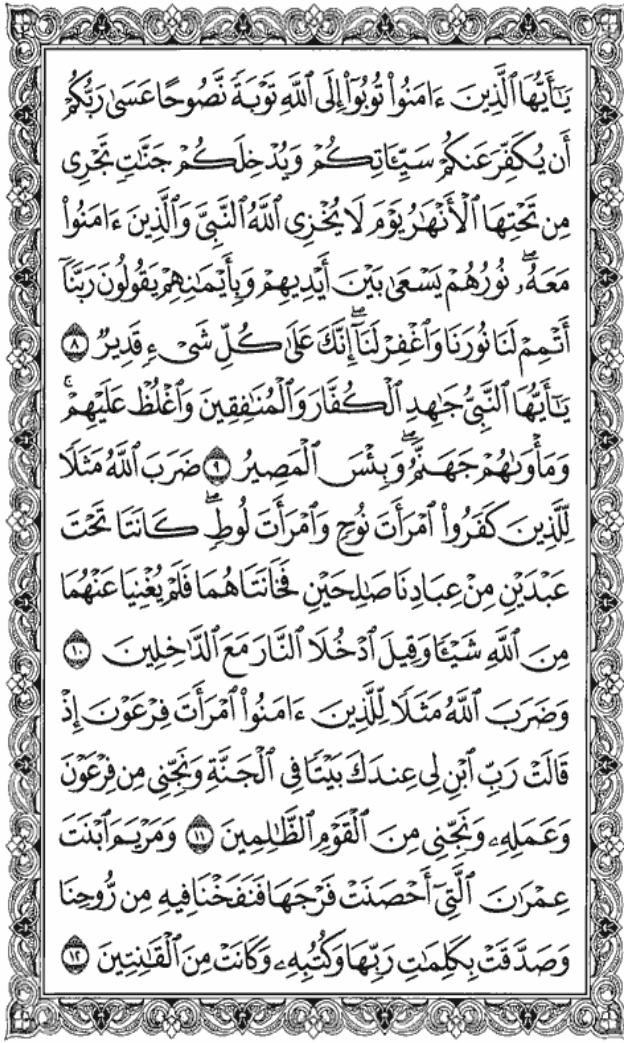 يَٰٓأَيُّهَا ٱلَّذِينَ ءَامَنُوا۟ تُوبُوٓا۟ إِلَى ٱللَّهِ تَوْبَةً نَّصُوحًا عَسَىٰ رَبُّكُمْ
أَن يُكَفِّرَ عَنكُمْ سَيِّـَٔاتِكُمْ وَيُدْخِلَكُمْ جَنَّٰتٍ تَجْرِى
مِن تَحْتِهَا ٱلْأَنْهَٰرُ يَوْمَ لَا يُخْزِى ٱللَّهُ ٱلنَّبِىَّ وَٱلَّذِينَ ءَامَنُوا۟
مَعَهُۥ ۖ نُورُهُمْ يَسْعَىٰ بَيْنَ أَيْدِيهِمْ وَبِأَيْمَٰنِهِمْ يَقُولُونَ رَبَّنَآ
أَتْمِمْ لَنَا نُورَنَا وَٱغْفِرْ لَنَآ ۖ إِنَّكَ عَلَىٰ كُلِّ شَىْءٍ قَدِيرٌ ٨
يَٰٓأَيُّهَا ٱلنَّبِىُّ جَٰهِدِ ٱلْكُفَّارَ وَٱلْمُنَٰفِقِينَ وَٱغْلُظْ عَلَيْهِمْ ۚ
وَمَأْوَىٰهُمْ جَهَنَّمُ ۖ وَبِئْسَ ٱلْمَصِيرُ ٩ ضَرَبَ ٱللَّهُ مَثَلًا
لِّلَّذِينَ كَفَرُوا۟ ٱمْرَأَتَ نُوحٍ وَٱمْرَأَتَ لُوطٍ ۖ كَانَتَا تَحْتَ
عَبْدَيْنِ مِنْ عِبَادِنَا صَٰلِحَيْنِ فَخَانَتَاهُمَا فَلَمْ يُغْنِيَا عَنْهُمَا
مِنَ ٱللَّهِ شَيْـًٔا وَقِيلَ ٱدْخُلَا ٱلنَّارَ مَعَ ٱلدَّٰخِلِينَ ١٠
وَضَرَبَ ٱللَّهُ مَثَلًا لِّلَّذِينَ ءَامَنُوا۟ ٱمْرَأَتَ فِرْعَوْنَ إِذْ
قَالَتْ رَبِّ ٱبْنِ لِى عِندَكَ بَيْتًا فِى ٱلْجَنَّةِ وَنَجِّنِى مِن فِرْعَوْنَ
وَعَمَلِهِۦ وَنَجِّنِى مِنَ ٱلْقَوْمِ ٱلظَّٰلِمِينَ ١١ وَمَرْيَمَ ٱبْنَتَ
عِمْرَٰنَ ٱلَّتِىٓ أَحْصَنَتْ فَرْجَهَا فَنَفَخْنَا فِيهِ مِن رُّوحِنَا
وَصَدَّقَتْ بِكَلِمَٰتِ رَبِّهَا وَكُتُبِهِۦ وَكَانَتْ مِنَ ٱلْقَٰنِتِينَ ١٢